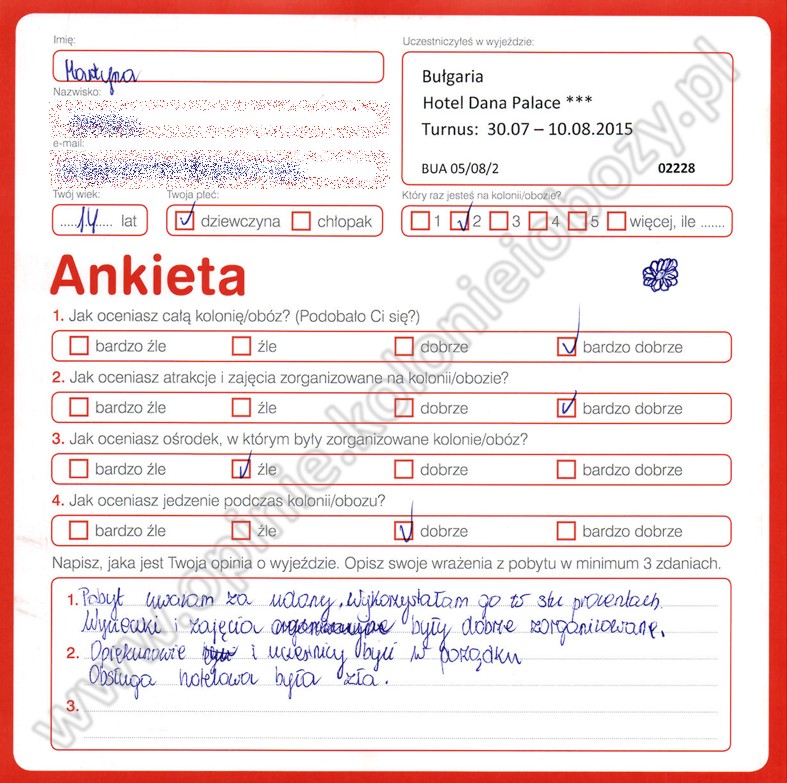 Imię:
Martyna
Nazwisko:
e-mail:
Twój wiek:
14 lat
Twoja płeć:
dziewczyna chłopak
Uczestniczyłeś w wyjeździe:
Bułgaria
Hotel Dana Palace ***
Turnus: 30.07 – 10.08.2015
BUA 05/08/2 02228
Który raz jesteś na kolonii/obozie?
1 2 3 4 5 więcej, ile .......
Ankieta
1. Jak oceniasz całą kolonię/obóz? (Podobało Ci się?)
bardzo źle źle dobrze bardzo dobrze
2. Jak oceniasz atrakcje i zajęcia zorganizowane na kolonii/obozie?
bardzo źle źle dobrze bardzo dobrze
3. Jak oceniasz ośrodek, w którym były zorganizowane kolonie/obóz?
bardzo źle źle dobrze bardzo dobrze
4. Jak oceniasz jedzenie podczas kolonii/obozu?
bardzo źle źle dobrze bardzo dobrze
Napisz, jaka jest Twoja opinia o wyjeździe. Opisz swoje wrażenia z pobytu w minimum 3 zdaniach.
1. Pobyt uważam za udany. Wykorzystałam go w stu procentach.
Wycieczki i zajęcia były dobrze zorganizowane.
2. Opiekunowie i uczestnicy byli w porządku
Obsługa hotelowa była zła.
3.
www.opinie.kolonieiobozy.pl